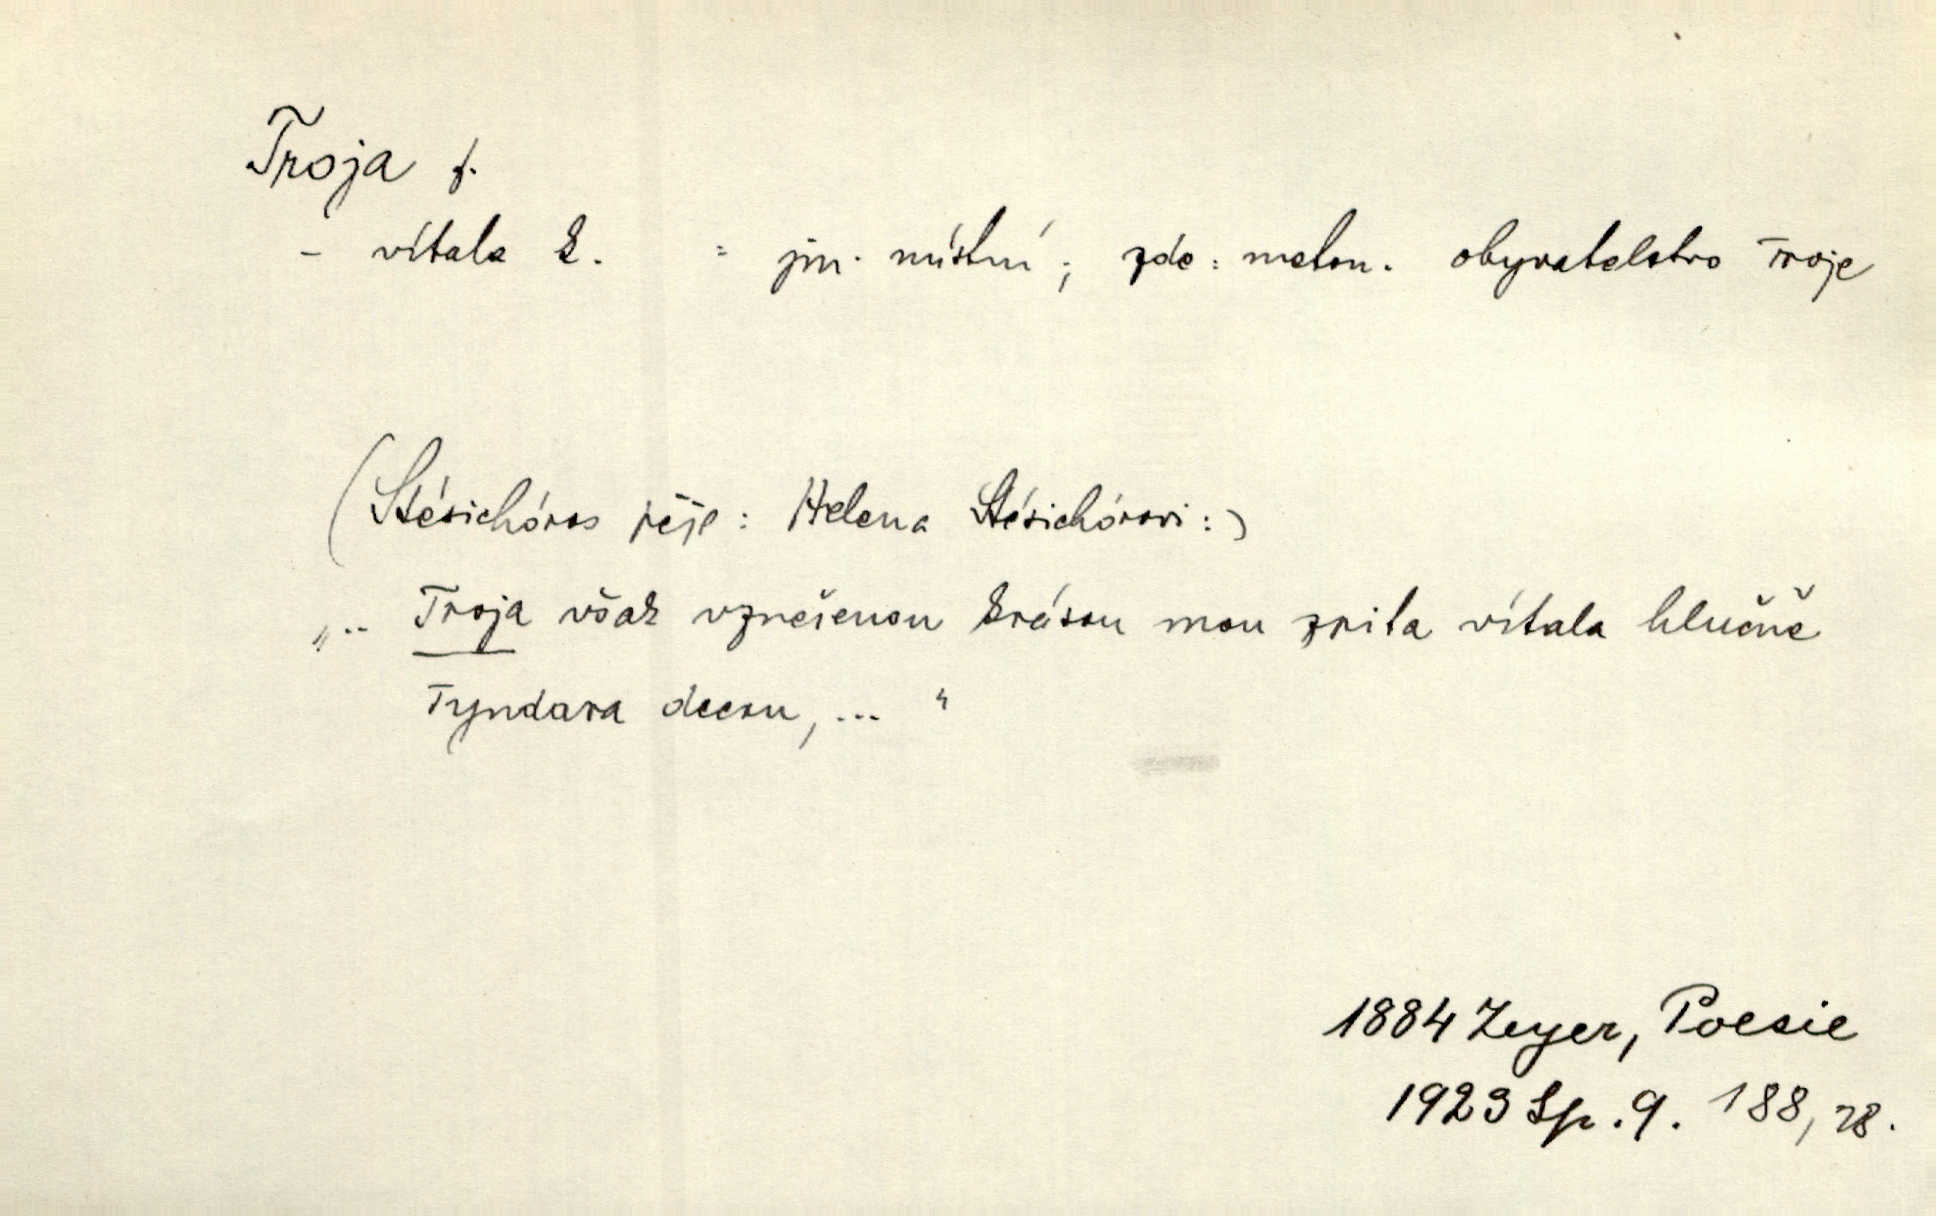 Troja f.
- vítala k. = jm. místní; zde: meton. obyvatelstvo Troje
(Stésichóros pěje: Helena Stésichórovi:)
„.. Troja však vznešenou krásou mou zpita vítala hlučně
Tyndara dceru, ... "
1884 Zeyer, Poesie
1923 Sp. 9. 188, 28.